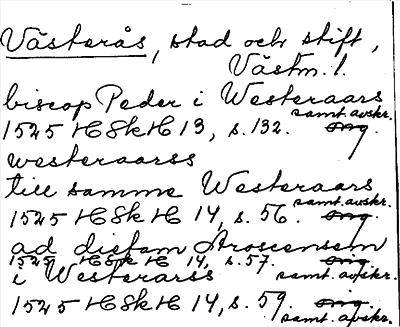 Västerås, stad och stift,
Västm. l.
biscop Peder i Westeraars
1525 HSkH 13, s. 132. orig. samt. avskr.
westeraarss
till samme Westeraars
1525 HSkH 14, s. 56. orig. samt. avskr.
ad dietam Arosiensem
1525 HSkH 14, s. 57. orig. samt. avskr.
i Westerarss
1525 HSkH 14, s. 59. orig. samt. avskr.